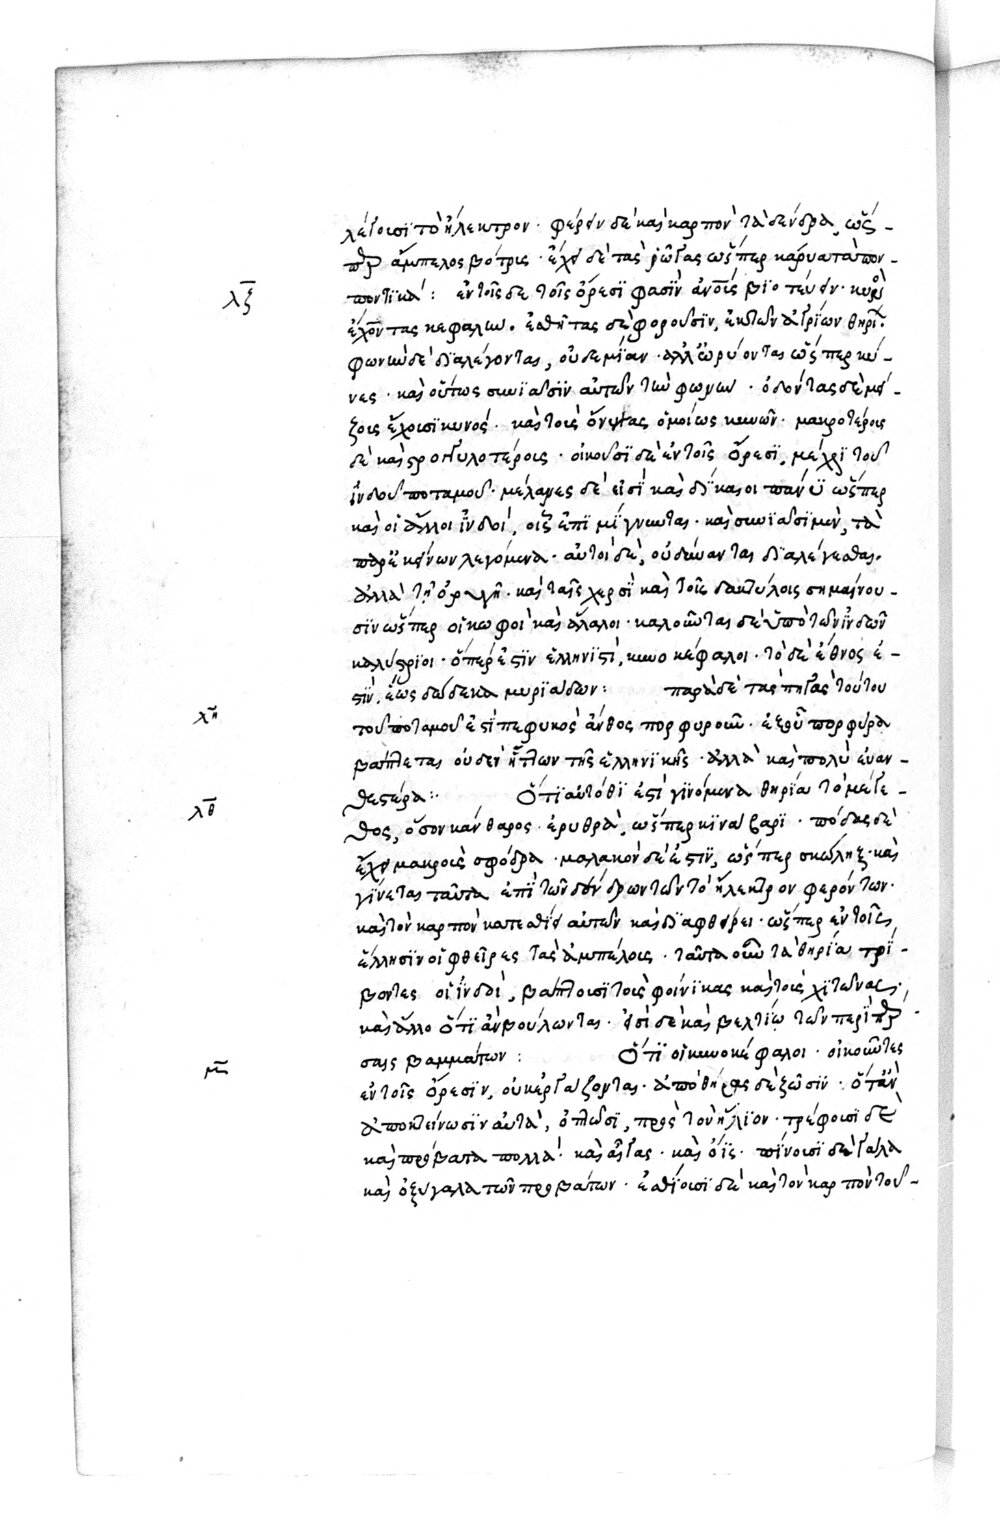 λέγουσι τὸ ἤλεκτρον· φέρειν δὲ καὶ καρπὸν τὰ δένδρα, ὥσ-
περ ἄμπελος βότρυς· ἔχει δὲ τὰς ῥῶγας ὥσπερ κάρυα τὰ πον-
ποντικά: ἐν τοῖς δὲ τοῖς ὄρεσι φασὶν ἀνους βιοτεύειν· κυνὸς
λζ
ἔχοντας κεφαλὴν. ἐσθῆτας δὲ φοροῦσιν, ἐκ τῶν ἀγρίων θηρίων·
φωνὴν δὲ διαλέγονται, οὐδεμίαν· ἀλλ' ὠρύονται ὥσπερ κύ-
νες· καὶ οὕτως συνιᾶσιν αὐτῶν τὴν φωνὴν· ὀδόντας δὲ μεί-
ζους ἔχουσι κυνός· καὶ τοὺς ὄνυχας ὁμοίως κυνῶν· μακροτέρους
δὲ καὶ στρογγυλοτέρους· οἰκοῦσι δὲ ἐν τοῖς ὄρεσι, μέχρι τοῦ
ἰνδοῦ ποταμοῦ· μέλανες δέ εἰσι καὶ δίκαιοι πάνυ ὥσπερ
καὶ οἱ ἄλλοι ἰνδοί, οἷς ἐπιμίγνυνται· καὶ συνιᾶσι μὲν, τὰ
παρ' ἐκείνων λεγόμενα· αὐτοὶ δὲ, οὐ δύνανται διαλέγεσθαι·
ἀλλὰ τῇ ὀρυγῇ· καὶ ταῖς χερσὶ καὶ τοῖς δακτύλοις σημαίνου-
σιν ὥσπερ οἱ κωφοὶ καὶ ἄλαλοι· καλοῦνται δὲ ὑπὸ τῶν ἰνδῶν
καλύστριοι· ὅπερ ἐστὶν ἑλληνιστί, κυνοκέφαλοι· τὸ δὲ ἔθνος ἐ-
στὶν, ἕως δώδεκα μυριάδων: παρὰ δὲ τὰς πηγὰς τούτου
λη
τοῦ ποταμοῦ ἐστὶ πεφυκὸς ἄνθος πορφυροῦν· ἐξ οὗ πορφύρα
βάπτεται οὐδὲν ἥττων τῆς ἑλληνικῆς· ἀλλὰ καὶ πολὺ εὐαν-
θεστέρα: Ὅτι αὐτόθι ἐστὶ γινόμενα θηρία τὸ μέγε-
λθ
θος, ὅσον κάνθαρος· ἐρυθρὰ, ὥσπερ κιναβαρι· πόδας δὲ
ἔχει μακροὺς σφόδρα· μαλακὸν δέ ἐστιν, ὥσπερ σκώληξ· καὶ
γίνεται ταῦτα ἐπὶ τῶν δένδρων τῶν τὸ ἤλεκτρον φερόντων·
καὶ τὸν καρπὸν κατεσθίει αὐτῶν καὶ διαφθείρει· ὥσπερ ἐν τοῖς
ἕλλησιν οἱ φθεῖρες τὰς ἀμπέλους· ταῦτα οὖν τὰ θηρία τρί-
βοντες οἱ ἰνδοὶ, βάπτουσι τοὺς φοίνικας καὶ τοὺς χιτῶνας·
καὶ ἄλλο ὅτι ἂν βούλωνται· εἰσὶ δὲ καὶ βελτίω τῶν περὶ πέρ-
σαις βαμμάτων: Ὅτι οἱ κυνοκέφαλοι· οἰκοῦντες
μ
ἐν τοῖς ὄρεσιν, οὐκ ἐργάζονται· ἀπὸ θήρας δὲ ζῶσιν· ὅταν
ἀποκτείνωσιν αὐτὰ, ὀπτῶσι, πρὸς τὸν ἥλιον· τρέφουσι δὲ
καὶ πρόβατα πολλὰ· καὶ αἶγας· καὶ ὄϊς· πίνουσι δὲ γάλα
καὶ ὀξύγαλα τῶν προβάτων· ἐσθίουσι δὲ καὶ τὸν καρπὸν τοῦ-